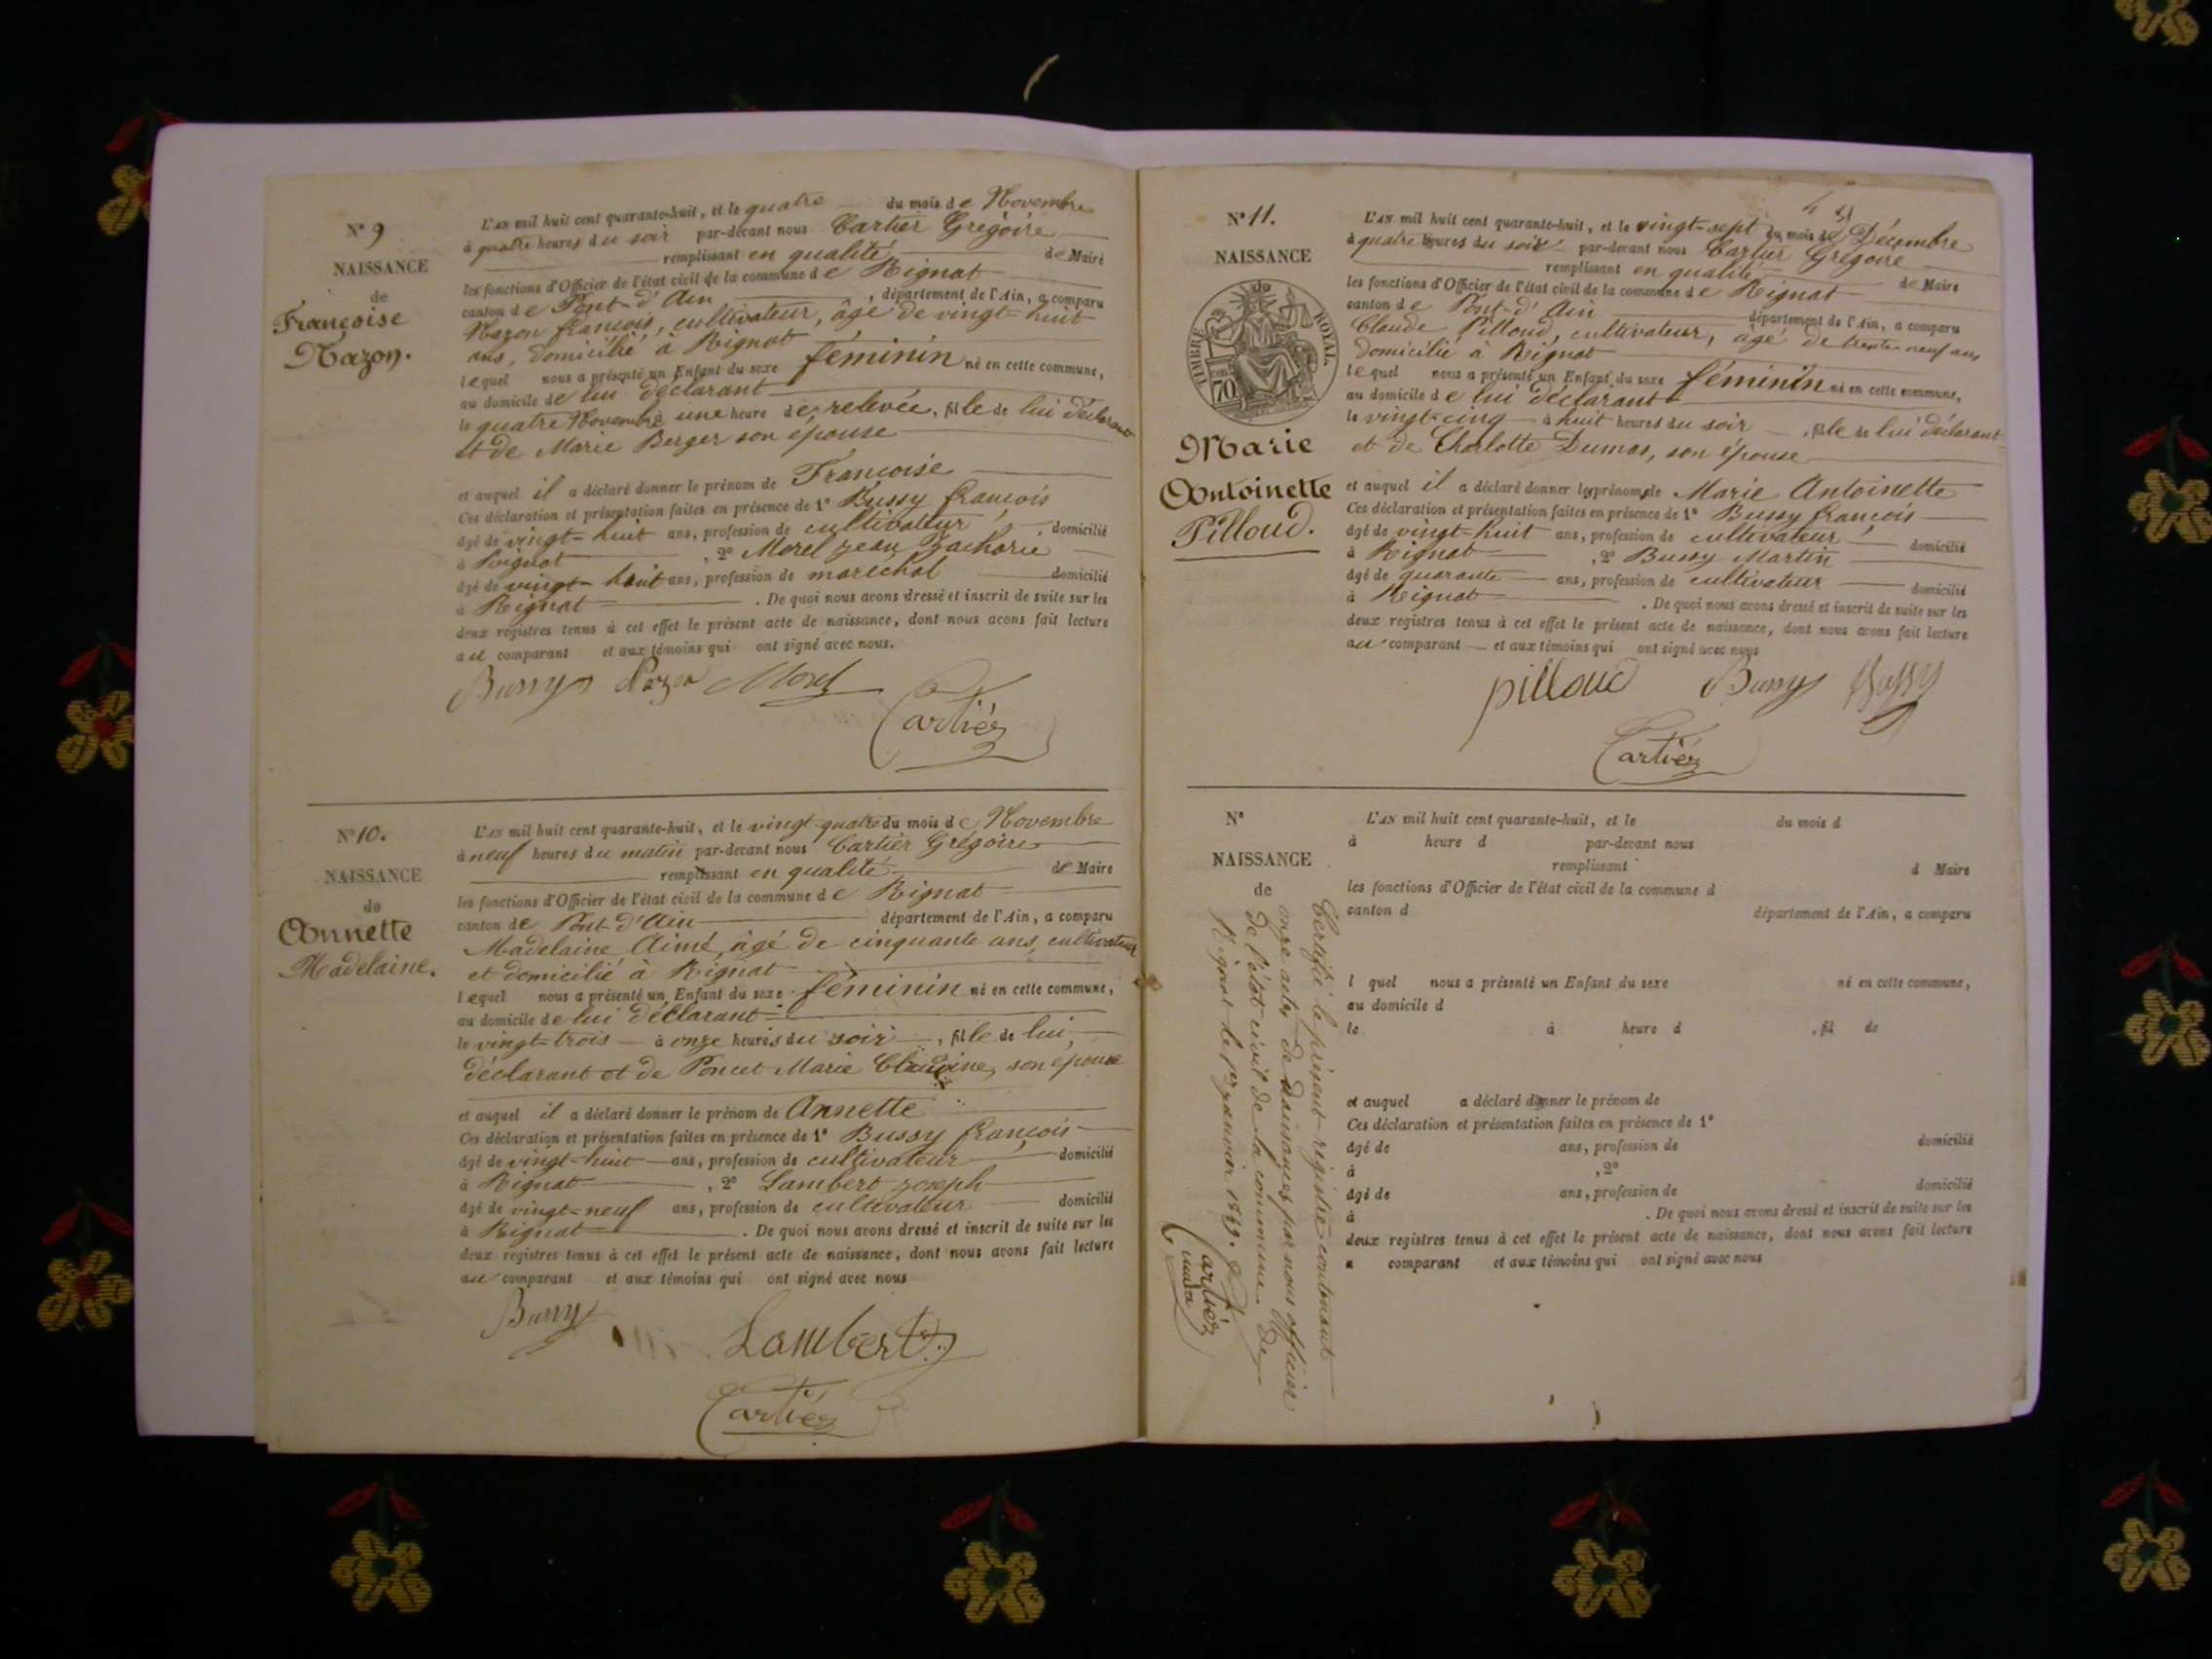 N° 9
NAISSANCE
de
Françoise
Nazon.
L'AN mil huit cent quarante-huit, et le quatre du mois de Novembre
à quatre heures du soir par-devant nous Cartier Grégoire
remplissant en qualité de Maire
les fonctions d'Officier de l'état civil de la commune de Rignat
canton de Pont-d'Ain, département de l'Ain, a comparu
Nazon françois, cultivateur, âgé de vingt-huit
ans, domicilié à Rignat
lequel nous a présenté un Enfant du sexe féminin né en cette commune,
au domicile de lui déclarant
le quatre Novembre à une heure de relevée, fille de lui déclarant
et de Marie Berger son épouse
et auquel il a déclaré donner le prénom de Françoise
Ces déclaration et présentation faites en présence de 1° Bussy françois
âgé de vingt-huit ans, profession de cultivateur domicilié
à Rignat, 2° Morel jean Zacharie
âgé de vingt-huit ans, profession de maréchal domicilié
à Rignat. De quoi nous avons dressé et inscrit de suite sur les
deux registres tenus à cet effet le présent acte de naissance, dont nous avons fait lecture
au comparant et aux témoins qui ont signé avec nous.
Bussy Nazon Morel
Cartier
N° 10.
NAISSANCE
de
Annette
Madelaine.
L'AN mil huit cent quarante-huit, et le vingt-quatre du mois de Novembre
à neuf heures du matin par-devant nous Cartier Grégoire
remplissant en qualité de Maire
les fonctions d'Officier de l'état civil de la commune de Rignat
canton de Pont-d'Ain département de l'Ain, a comparu
Madelaine Aimé, âgé de cinquante ans, cultivateur
et domicilié à Rignat
lequel nous a présenté un Enfant du sexe féminin né en cette commune,
au domicile de lui déclarant
le vingt-trois à onze heures du soir, fille de lui,
déclarant et de Poncet Marie Claudine, son épouse
et auquel il a déclaré donner le prénom de Annette
Ces déclaration et présentation faites en présence de 1° Bussy françois
âgé de vingt-huit ans, profession de cultivateur domicilié
à Rignat, 2° Lambert joseph
âgé de vingt-neuf ans, profession de cultivateur domicilié
à Rignat. De quoi nous avons dressé et inscrit de suite sur les
deux registres tenus à cet effet le présent acte de naissance, dont nous avons fait lecture
au comparant et aux témoins qui ont signé avec nous
Bussy
Lambert
Cartier
N° 11.
NAISSANCE
de
TIMBRE ROYAL
70
Marie
Antoinette
Pilloud.
L'AN mil huit cent quarante-huit, et le vingt-sept du mois de Décembre
à quatre heures du soir par-devant nous Cartier Grégoire
remplissant en qualité de Maire
les fonctions d'Officier de l'état civil de la commune de Rignat
canton de Pont-d'Ain département de l'Ain, a comparu
Claude Pilloud, cultivateur, âgé de trente-neuf ans
domicilié à Rignat
lequel nous a présenté un Enfant du sexe féminin né en cette commune,
au domicile de lui déclarant
le vingt-cinq à huit heures du soir, fille de lui déclarant
et de Charlotte Dumas, son épouse
et auquel il a déclaré donner les prénoms de Marie Antoinette
Ces déclaration et présentation faites en présence de 1° Bussy françois
âgé de vingt-huit ans, profession de cultivateur domicilié
à Rignat, 2° Bussy Martin
âgé de quarante ans, profession de cultivateur domicilié
à Rignat. De quoi nous avons dressé et inscrit de suite sur les
deux registres tenus à cet effet le présent acte de naissance, dont nous avons fait lecture
au comparant et aux témoins qui ont signé avec nous
pilloud Bussy Bussy
Cartier
N°
NAISSANCE
de
L'AN mil huit cent quarante-huit, et le du mois d
à heure d par-devant nous
remplissant d Maire
les fonctions d'Officier de l'état civil de la commune d
canton d département de l'Ain, a comparu
l quel nous a présenté un Enfant du sexe né en cette commune,
au domicile d
le à heure d, fil de
et auquel a déclaré donner le prénom de
Ces déclaration et présentation faites en présence de 1°
âgé de ans, profession de domicilié
à , 2°
âgé de ans, profession de domicilié
à . De quoi nous avons dressé et inscrit de suite sur les
deux registres tenus à cet effet le présent acte de naissance, dont nous avons fait lecture
a comparant et aux témoins qui ont signé avec nous
Certifié le présent registre contenant
onze actes de naissances par nous officier
de l'état civil de la commune de
Rignat le 1er janvier 1849.
Cartier
maire